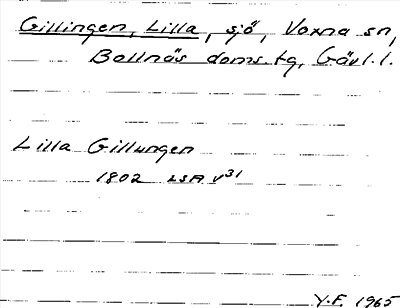 Gillingen, Lilla, sjö, Voxna sn,
Bollnäs doms.tg, Gävl.l.
Lilla Gillungen
1802 LSA V31
Y.F. 1965